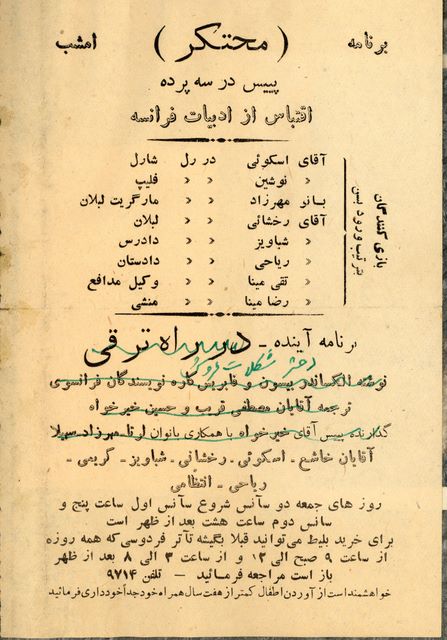 برنامه ( محتکر ) امشب
پییس در سه پرده
اقتباس از ادبیات فرانسه
بازی کنندگان
بترتیب ورود بسن
آقای اسکوئی در رل شارل
« نوشین « « فلیپ
بانو مهرزاد « « مارگریت لبلان
آقای رخشائی « « لبلان
« شباویز « « دادرس
« ریاحی « « دادستان
« تقی مینا « « وکیل مدافع
« رضا مینا « « منشی
برنامه آینده - در راه ترقی
دختر شکلات فروش
نوشته الکساندر بیسون و فابریس کاره نویسندگان فرانسوی
ترجمه آقایان مصطفی قریب و حسین خیرخواه
گذارنده پییس آقای خیرخواه با همکاری بانوان ارتا مهرزاد سهیلا
آقایان خاشع - اسکوئی - رخشانی - شباویز - کریمی -
ریاحی - انتظامی
روز های جمعه دو سآنس شروع سآنس اول ساعت پنج و
سآنس دوم ساعت هشت بعد از ظهر است
برای خرید بلیط می‌توانید قبلا بگیشه تآتر فردوسی که همه روزه
از ساعت ۹ صبح الی ۱۲ و از ساعت ۳ الی ۸ بعد از ظهر
باز است مراجعه فرمائید - تلفن ۹۷۱۴
خواهشمند است از آوردن اطفال کمتر از هفت سال همراه خود جداً خودداری فرمائید